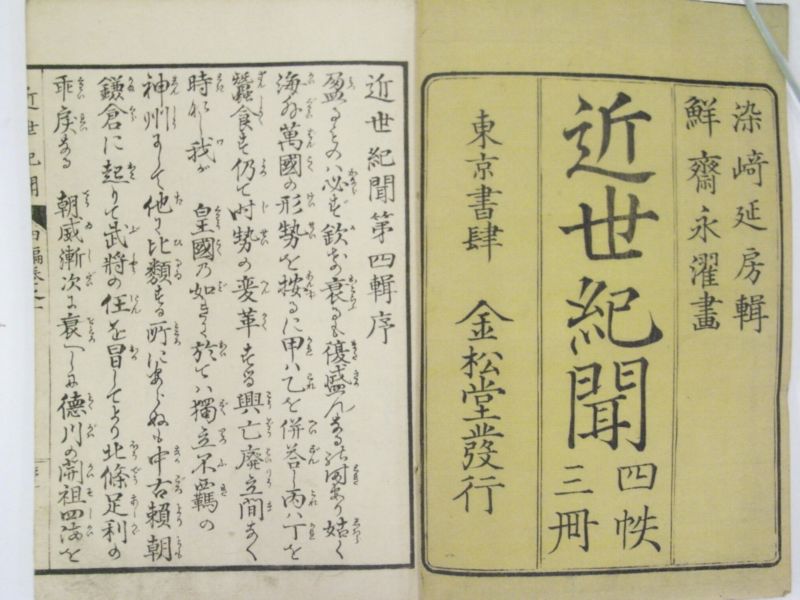 染﨑延房輯
鮮齋永濯畫
近世紀聞
四帙
三冊
東京書肆
金松堂發行
近世紀聞第四輯序
盈るものハ必ず欽け衰るも復盛んなる
海外萬國の形勢を按るに甲ハ乙を併呑し丙ハ丁を
蠶食す仍て時勢の変革する興亡廃立間なく
時なし我が　皇國の如きに於てハ獨立不羈の
神州にして他に比類する所にあらぬも中古賴朝
鎌倉に起りて武將の任を冒してより北條足利の
乖戻なる　朝威漸次に衰へしに德川の開祖四海を
近世紀聞
四編